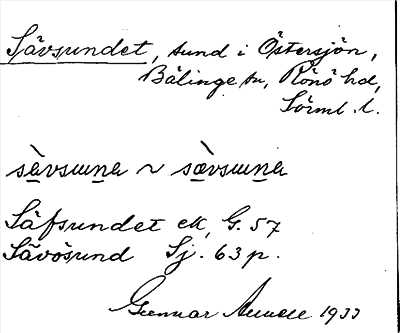 Sävsundet, sund i Östersjön,
Bälinge sn, Rönö hd,
Sörml. l.
sä̀vsuṉa ~ sæ̀vsuṉa
Säfsundet ek, G. 57
Sävösund Sj. 63 p.
Gunnar 1933